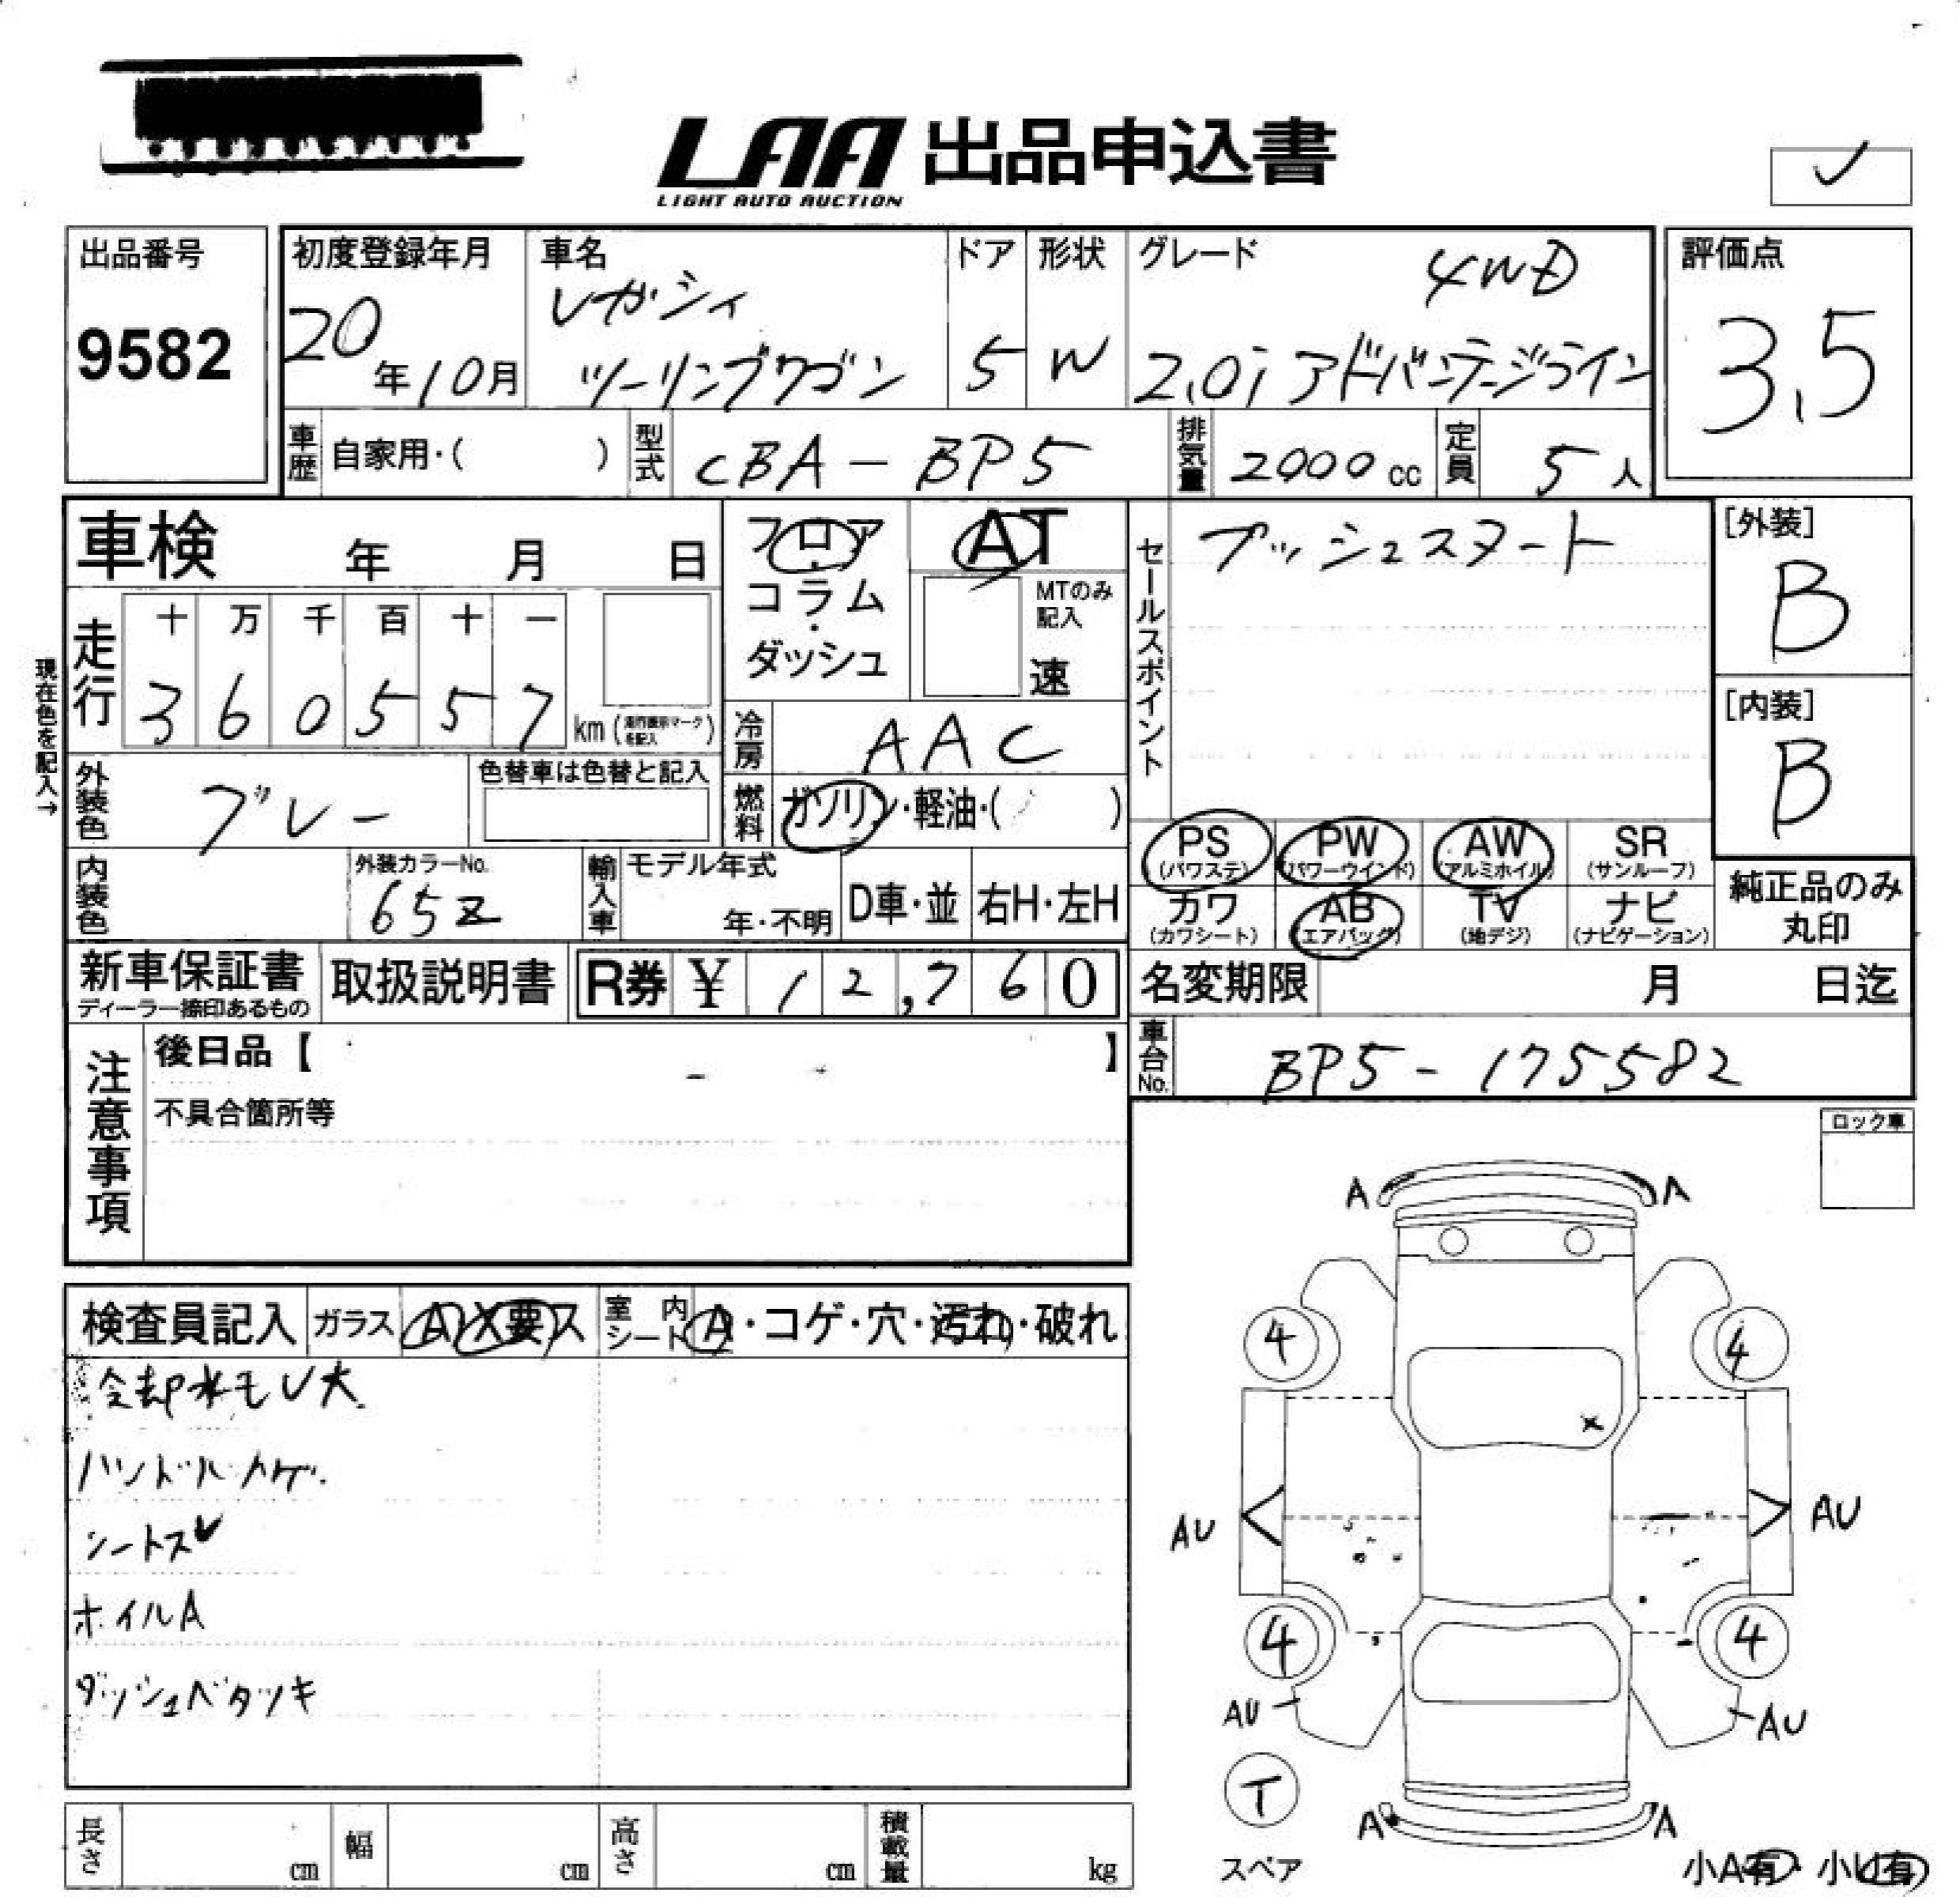 LAA 出品申込書
LIGHT AUTO AUCTION
出品番号
9582
初度登録年月
20年10月
車名
レガシィ
ツーリングワゴン
ドア
5
形状
W
グレード
4WD
2.0i アドバンテージライン
評価点
3.5
車歴
自家用・( )
型式
CBA-BP5
排気量
2000 cc
定員
5人
車検 年 月 日
フロア
コラム
・
ダッシュ
AT
MTのみ
記入
速
セールスポイント
プッシュスタート
[外装]
B
[内装]
B
現在色を記入→
走行
十 万 千 百 十 一
3 6 0 5 5 7
km( )
を記入
冷房
AAC
外装色
グレー
色替車は色替と記入
燃料
ガソリン・軽油・( )
内装色
外装カラーNo.
65Z
輸入車
モデル年式
年・不明
D車・並
右H・左H
PS
(パワステ)
PW
(パワーウインド)
AW
(アルミホイル)
SR
(サンルーフ)
カワ
(カワシート)
AB
(エアバッグ)
TV
(地デジ)
ナビ
(ナビゲーション)
純正品のみ
丸印
新車保証書
ディーラー捺印あるもの
取扱説明書
R券 ¥ 12,760
名変期限 月 日迄
車台No.
BP5-175582
注意事項
後日品【 】
不具合箇所等
ロック車
検査員記入
ガラス
A X 要ス
室内
シート
A・コゲ・穴・汚れ・破れ
冷却水モレ大
ハンドルハゲ
シートスレ
ホイルA
ダッシュベタツキ
A A
4 4
x
AU AU
4 4
AU AU
T
スペア
A A
小A有・小U有
長さ cm
幅 cm
高さ cm
積載量 kg